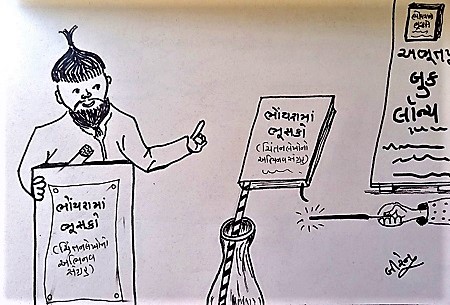 ભોંયરામાં
ભૂસકો
(ચિંતનલેખોનો
અભિનવ
સંગ્રહ)
ભોંયરામાં
ભૂસકો
(ચિંતનલેખોનો
અભિનવ સંગ્રહ)
ભોંયરામાં
ભૂસકો
અભૂતપૂ
બુક
લૉન્ચ